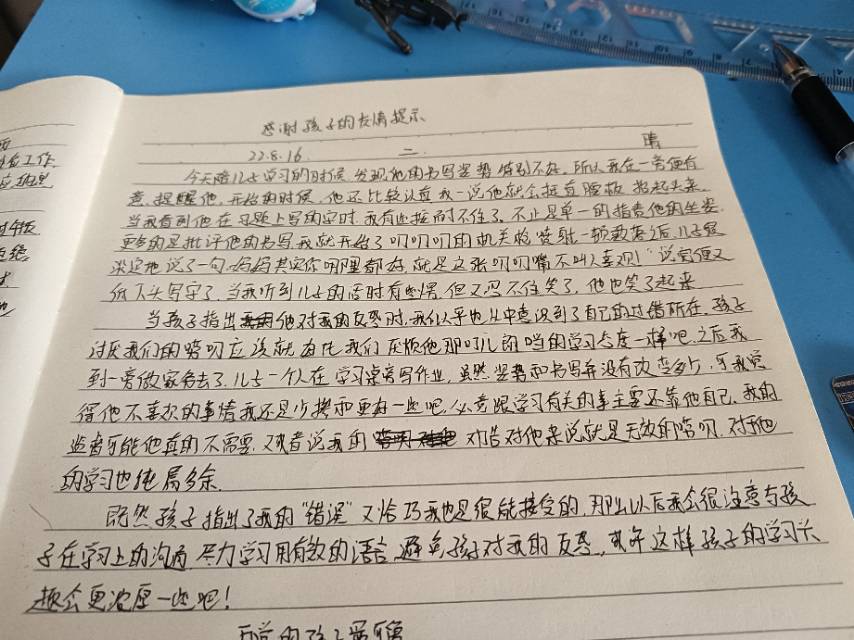 感谢孩子的友情提示
22.8.16. 二 晴
今天陪儿子学习的时候,发现他的书写姿势特别不好,所以我在一旁便有
意提醒他,开始的时候,他还比较认真我一说他就会挺直腰板抬起头来,
当我看到他在习题上写的字时,我有些按耐不住了,不止是单一的指责他的坐姿,
更多的是批评他的书写,我就开始了叨叨叨的机关枪赞射一顿数落之后,儿子很
淡定地说了一句,妈妈其实你哪里都好,就是这张叨叨嘴不叫人喜欢!"说完便又
低下头写字了,当我听到儿子的话时有些愣,但又忍不住笑了,他也笑了起来
当孩子指出他对我的反感时,我似乎也从中意识到了自己的过错所在,孩子
讨厌我们的唠叨应该就由比我们厌烦他那叮儿啷当的学习态度一样吧,之后我
到一旁做家务去了,儿子一个人在学习桌旁写作业,虽然姿势和书写并没有改变多少,可我觉
得他不喜欢的事情我还是少搀和更好一些吧,必竟跟学习有关的事主要还靠他自己,我的
监督可能他真的不需要,又或者说我的 劝告对他来说就是无效的唠叨,对于他
的学习也纯属多余
既然孩子指出了我的"错误"又恰巧我也是很能接受的,那么以后我会很注意与孩
子在学习上的沟通尽力学习用有效的语言,避免孩子对我的反感,或许这样孩子的学习兴
趣会更浓厚一些吧!
的孩子